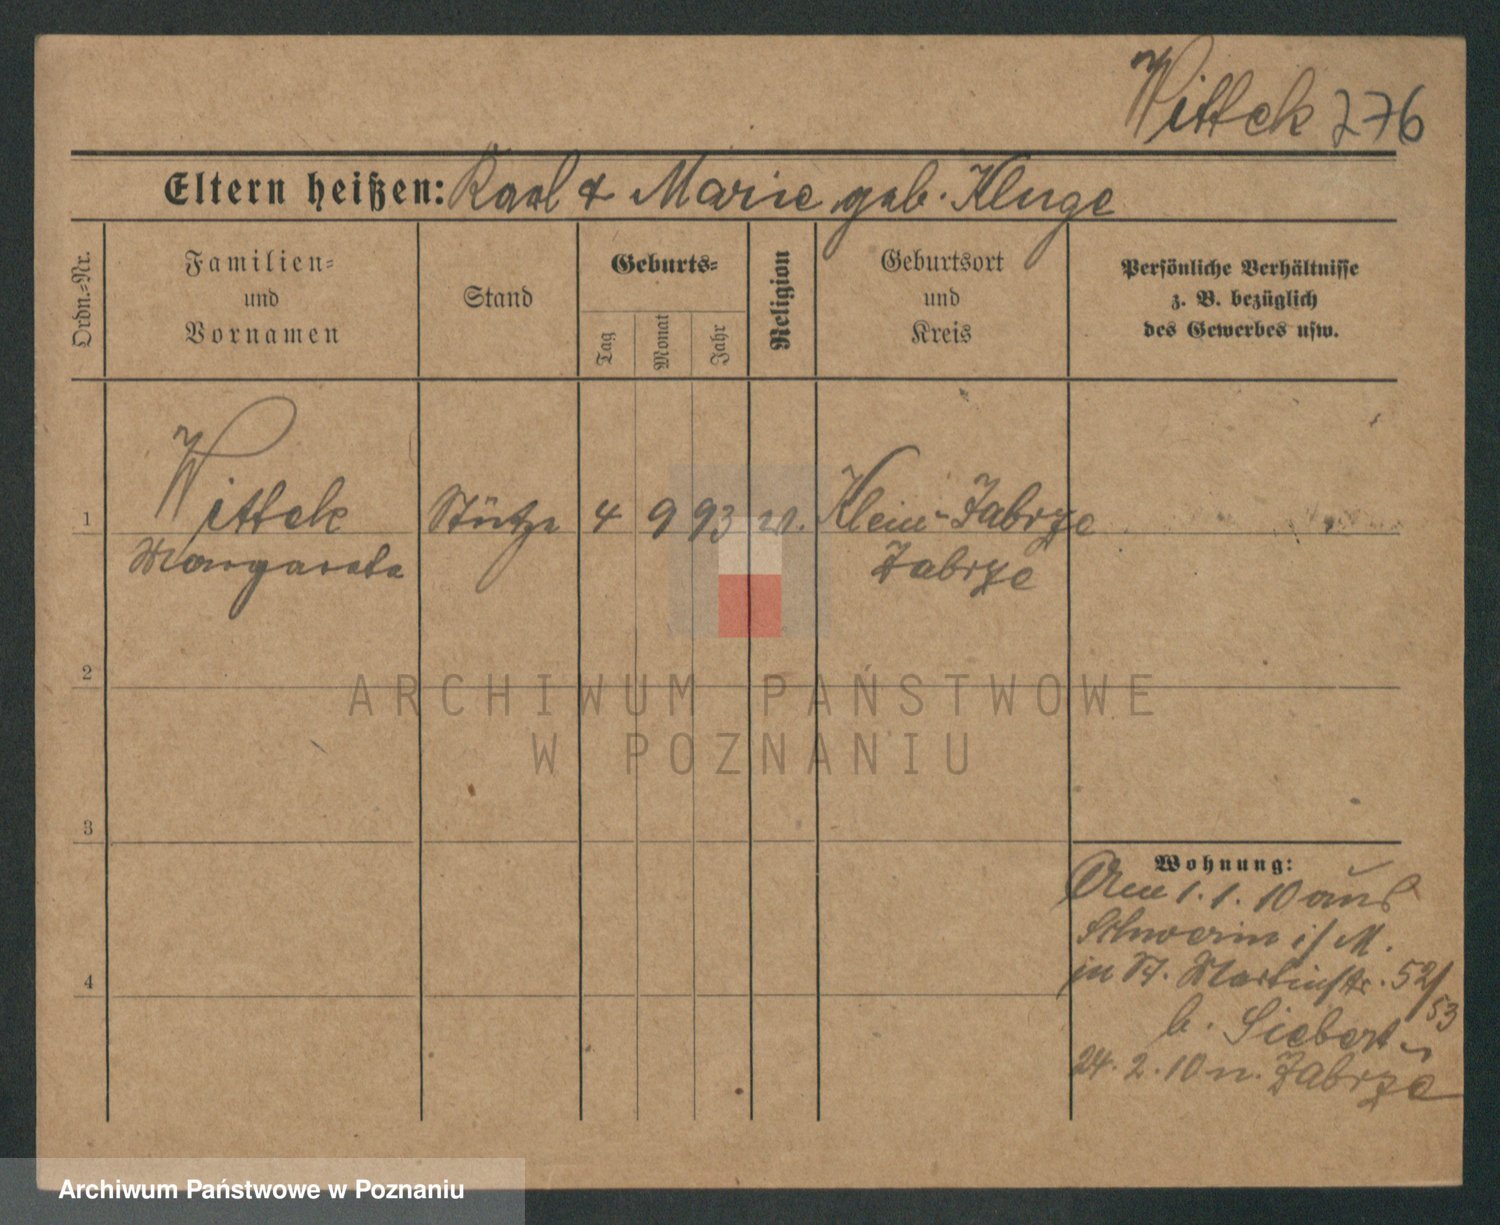 Wittek 276
Eltern heißen: Karl & Marie geb. Kluge
Ordn.-Nr.
Familien-
und
Vornamen
Stand
Geburts-
Tag
Monat
Jahr
Religion
Geburtsort
und
Kreis
Persönliche Verhältnisse
z. B. bezüglich
des Gewerbes usw.
1 Wittek Stütze 4 9 93 Klein-Zabrze
Margarete Zabrze
2
3
4
Wohnung:
Am 1. 1. 10 aus
Schwerin i/M.
in St. Martinstr. 52/
53
b. Siebert
24. 2. 10 n. Zabrze
ARCHIWUM PAŃSTWOWE
W POZNANIU
Archiwum Państwowe w Poznaniu